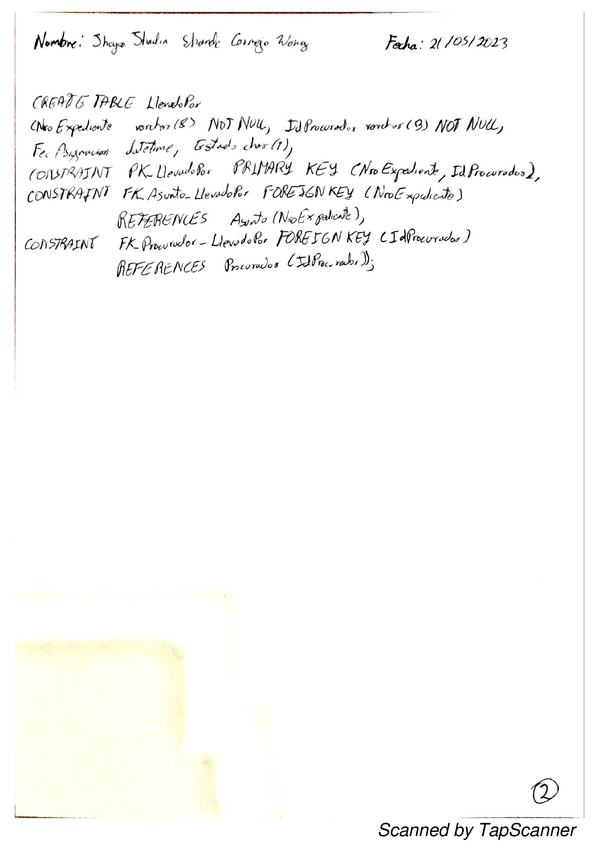 Nombre: Cornejo Wong Fecha: 21/05/2023
CREATE TABLE LlevadoPor
(NroExpediente varchar(8) NOT NULL, IdProcurador varchar(9) NOT NULL,
Fec_Asignacion datetime, Estado char(1),
CONSTRAINT PK_LlevadoPor PRIMARY KEY (NroExpediente, IdProcurador),
CONSTRAINT FK_Asunto_LlevadoPor FOREIGN KEY (NroExpediente)
REFERENCES Asunto (NroExpediente),
CONSTRAINT FK_Procurador_LlevadoPor FOREIGN KEY (IdProcurador)
REFERENCES Procurador (IdProcurador));
2
Scanned by TapScanner